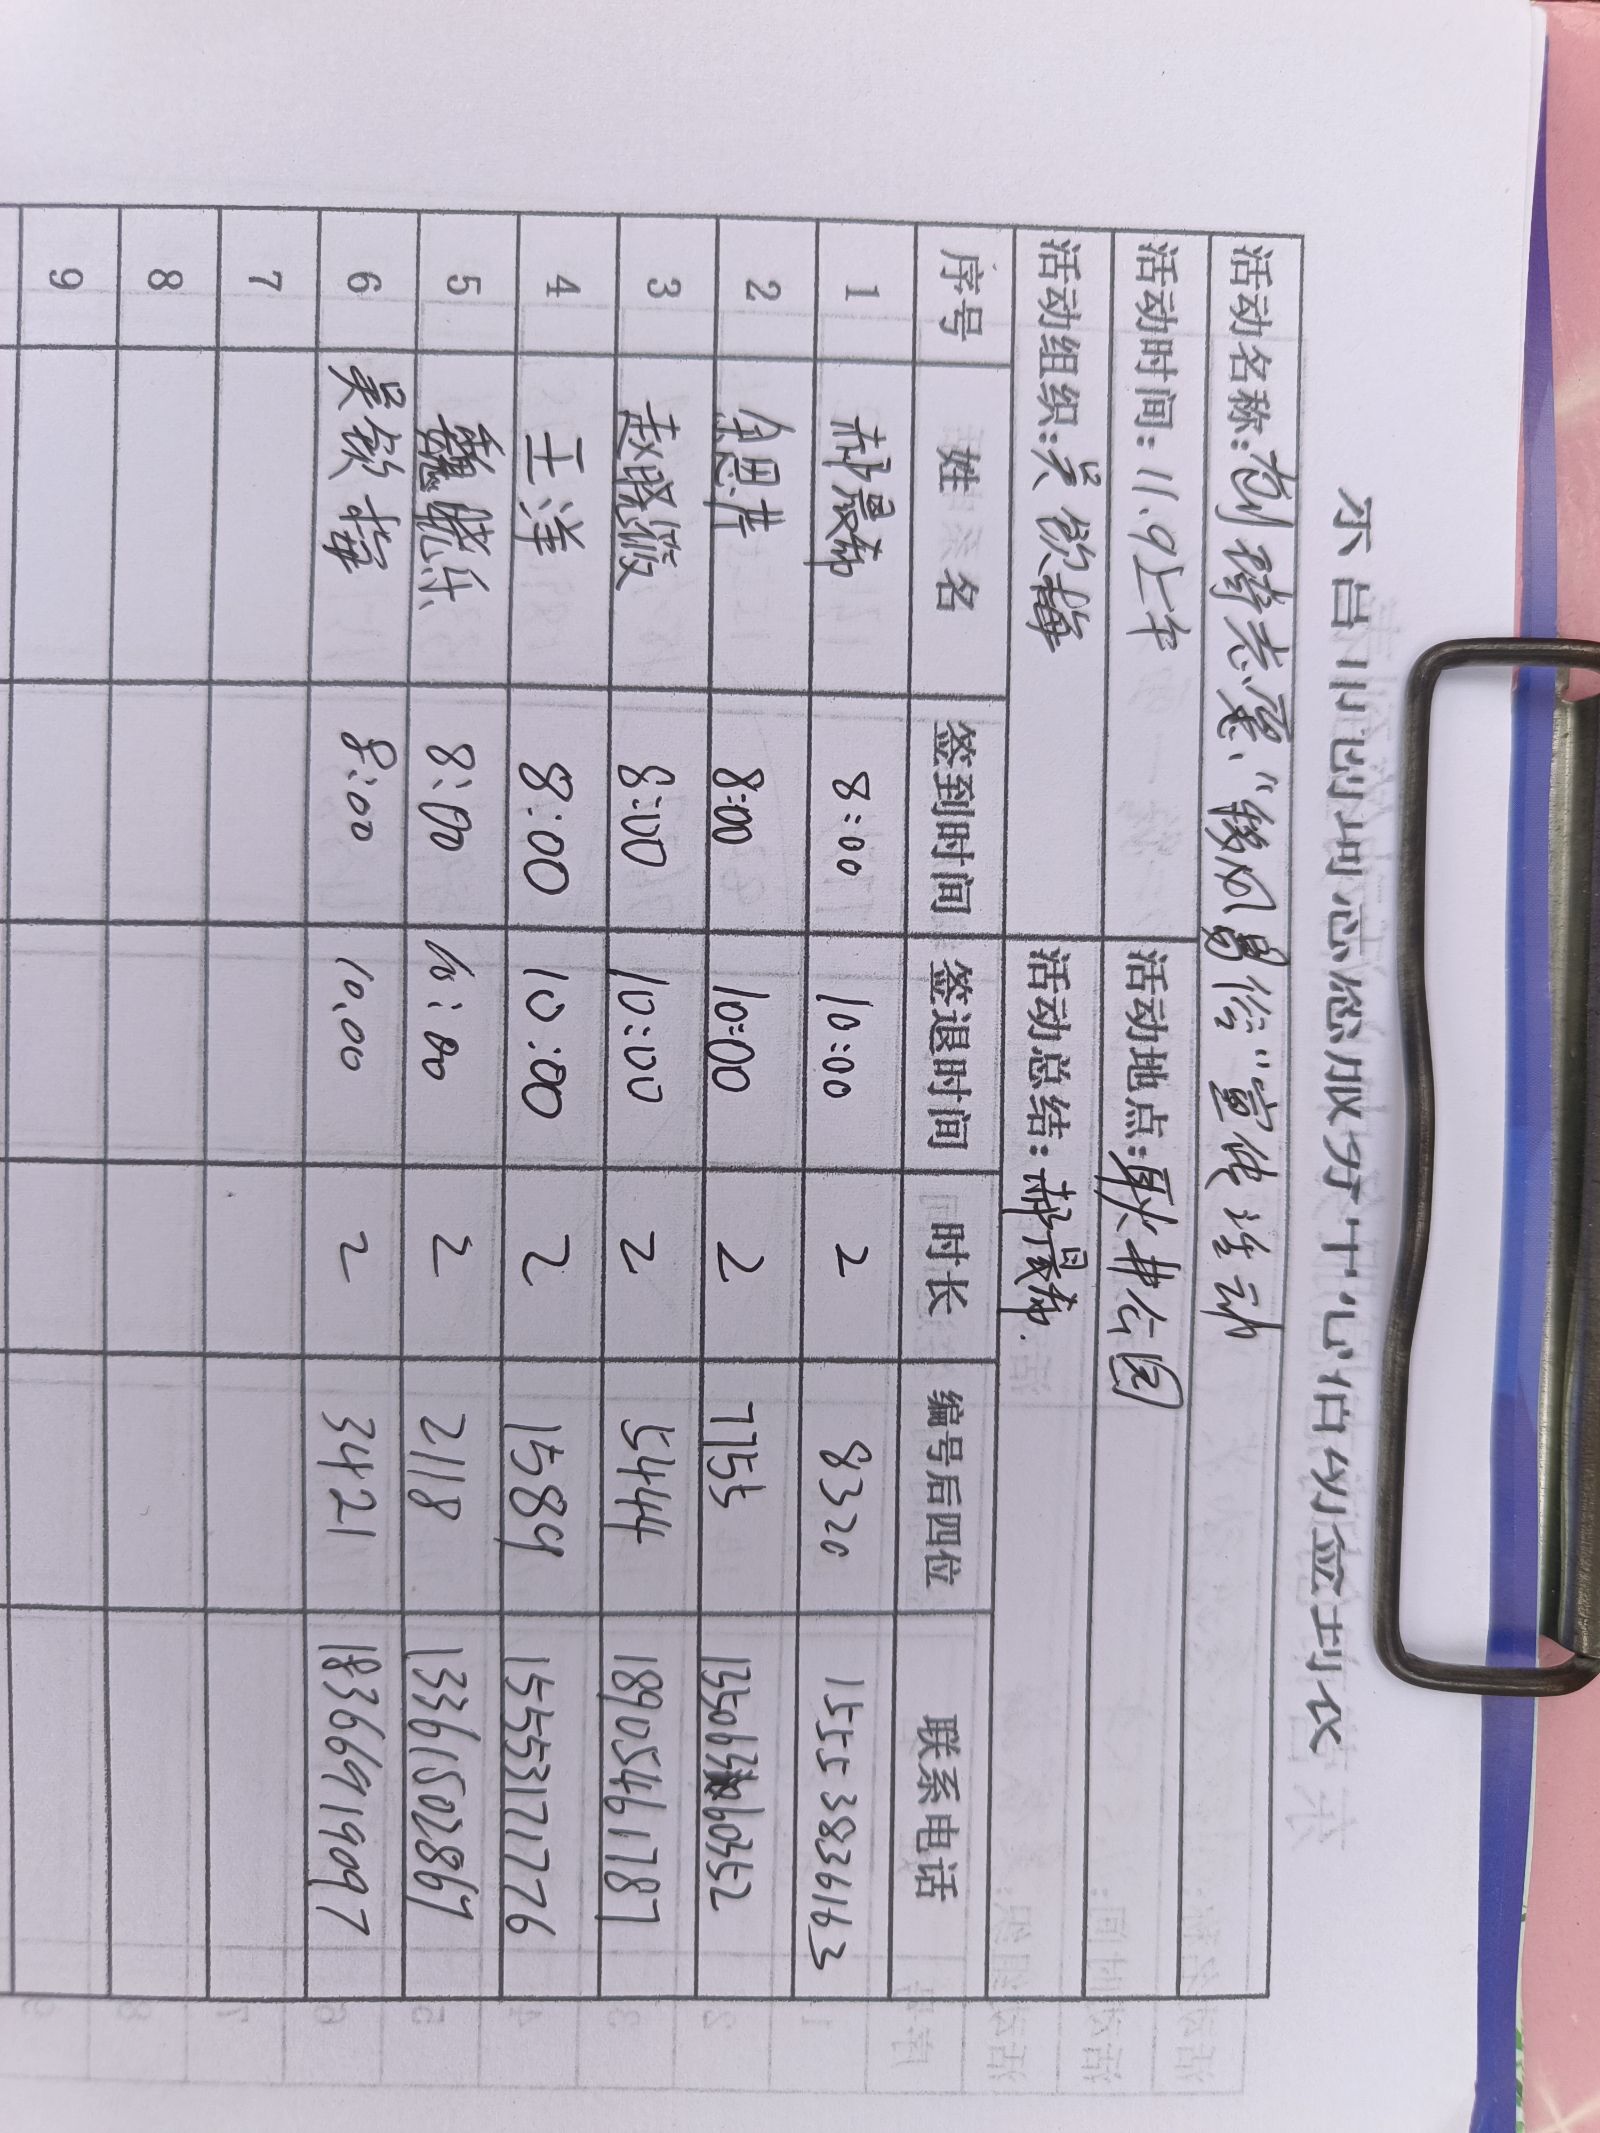 活动名称:创博志愿、“移风易俗”宣传活动
活动时间:11.9上午 活动地点:耿井公园
活动组织:吴钦梅 活动总结:郝晨静.
序号 姓名 签到时间 签退时间 时长 编号后四位 联系电话
1 8:00 10:00 2 8320 15553836163
2 8:00 10:00 2 7755
3 赵晓 8:00 10:00 2 5444 18905461787
4 王洋 8:00 10:00 2 1589 15553171776
5 魏晓乐 8:00 10:00 2 2118 13361502867
6 吴钦梅 8:00 10.00 2 3421 18366919097
7
8
9